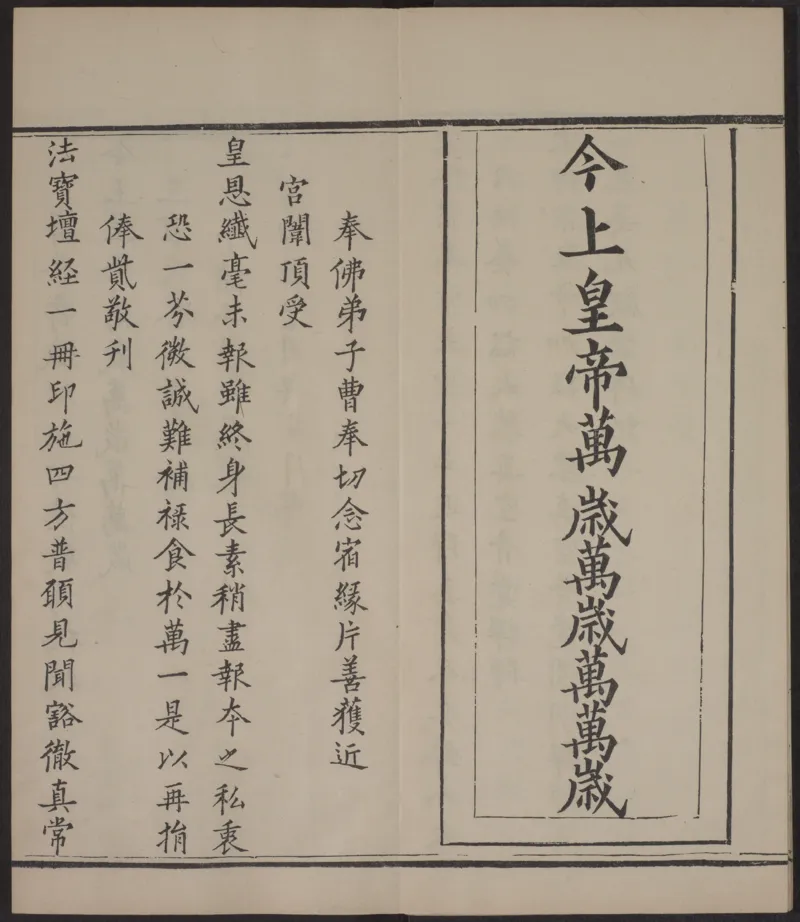 今上皇帝萬歲萬歲萬萬歲
奉佛弟子曹奉切念宿緣片善獲近
宮闈頂受
皇恩纖毫未報雖終身長素稍盡報夲之私衷
恐一芥微誠難補祿食於萬一是以再捐
俸貲敬刊
法寶壇経一冊印施四方普願見聞豁徹真常